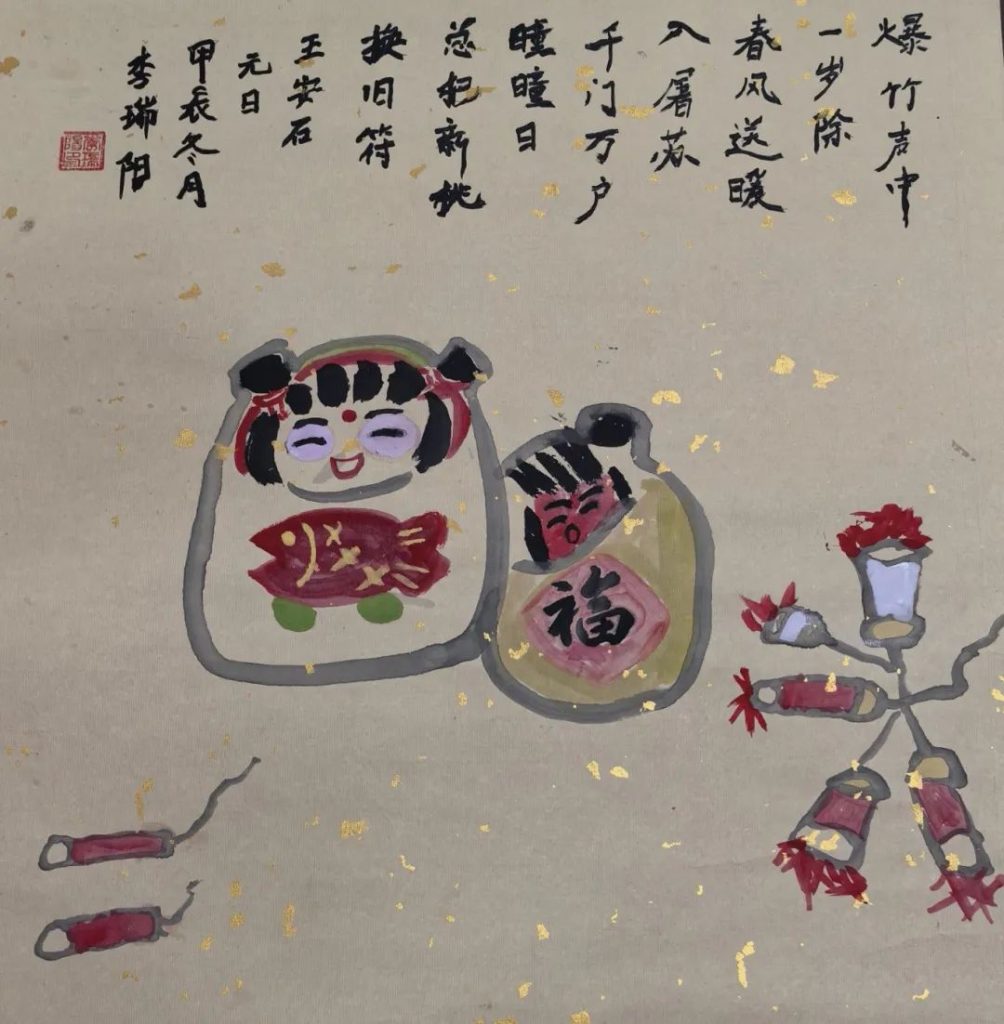 爆竹声中
一岁除
春风送暖
入屠苏
千门万户
曈曈日
总把新桃
换旧符
王安石
元日
甲辰冬月
李瑞阳
福